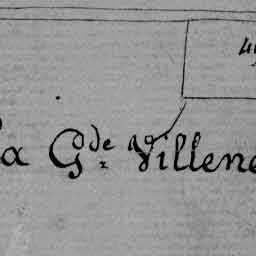 La Gde Villene